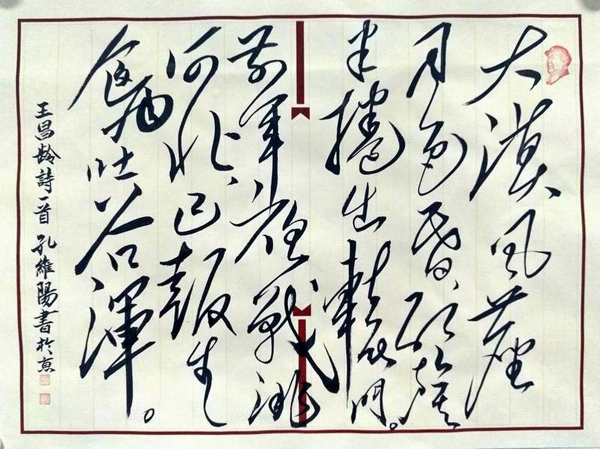 大漠風塵
日色昏,紅旗
半捲出轅門。
前軍夜戰洮
河北、已報生
擒吐谷渾。
王昌齡詩一首 孔維陽書於京